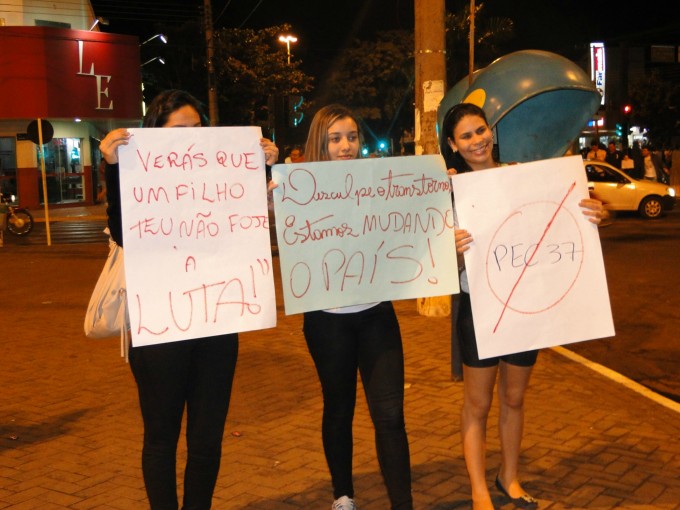 LE
VERÁS QUE
UM FILHO
TEU NÃO FOJE
A
LUTA!"
Desculpe o transtorno,
Estamos MUDANDO
O PAÍS!
PEC 37